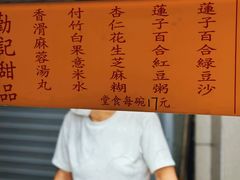 蓮子百合綠豆沙
蓮子百合紅豆粥
杏仁花生芝麻糊
堂食每碗17元
付竹白果意米水
香滑麻蓉湯丸
勤記甜品